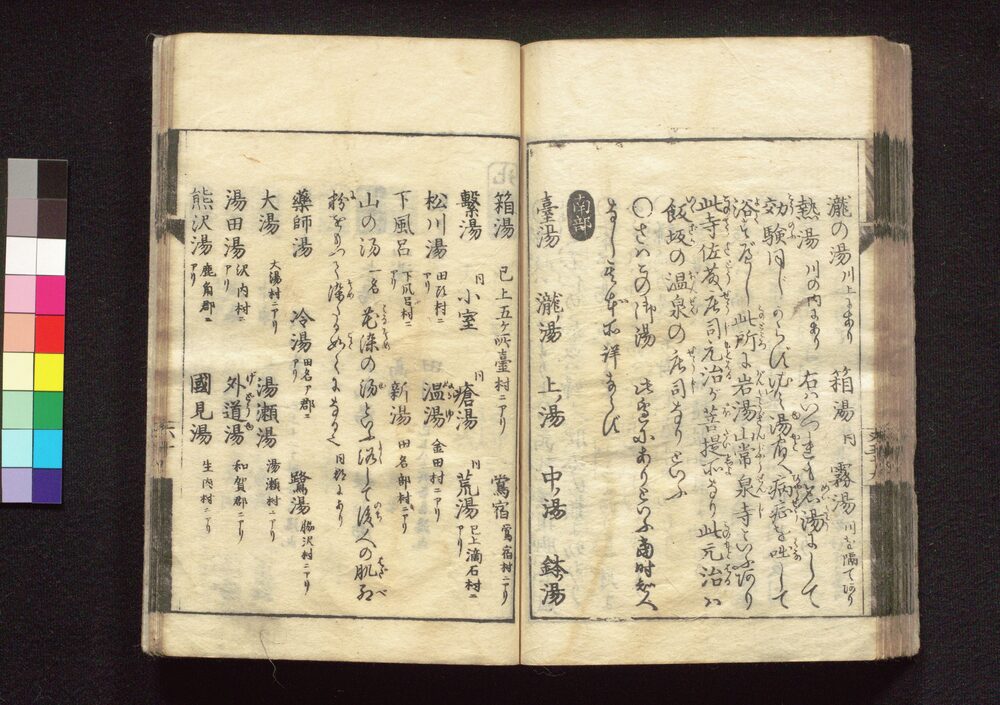 瀧の湯 川上にあり 箱湯 同 霧湯 川を隔てあり
熱湯 川の内にあり 右はいづれも名湯にして
効験同じからず 湯有 病症を して
浴すべし 此所に岩湯山常泉寺といふあり
此寺佐藤庄司元治が菩提所なり此元治は
飯坂の温泉の庄司なりといふ
〇さはこの御湯 此 にありといふ
詳ならず
南部
臺湯 瀧ノ湯 上ノ湯 中ノ湯 鉢ノ湯
箱湯 已上五ケ所臺村ニアリ 鶯宿 鶯宿村ニアリ
繋湯 同 小室 同 瘡湯 同 荒湯 已上滴石村ニアリ
松川湯 田頭村ニアリ 温湯 金田村ニアリ
下風呂 下風呂村ニアリ 新湯 田名部村ニアリ
山の湯 一名 花染の湯といふ浴して後人の肌 紅
粉をもつて染たる如くになるといふ 同郡にあり
藥師湯 冷湯 田名 郡ニアリ 鷺湯 脇沢村ニアリ
大湯 大湯村ニアリ 湯瀬湯 湯瀬村ニアリ
湯田湯 沢内村ニアリ 外道湯 和賀郡ニアリ
熊沢湯 鹿角郡ニアリ 國見湯 生内村ニアリ